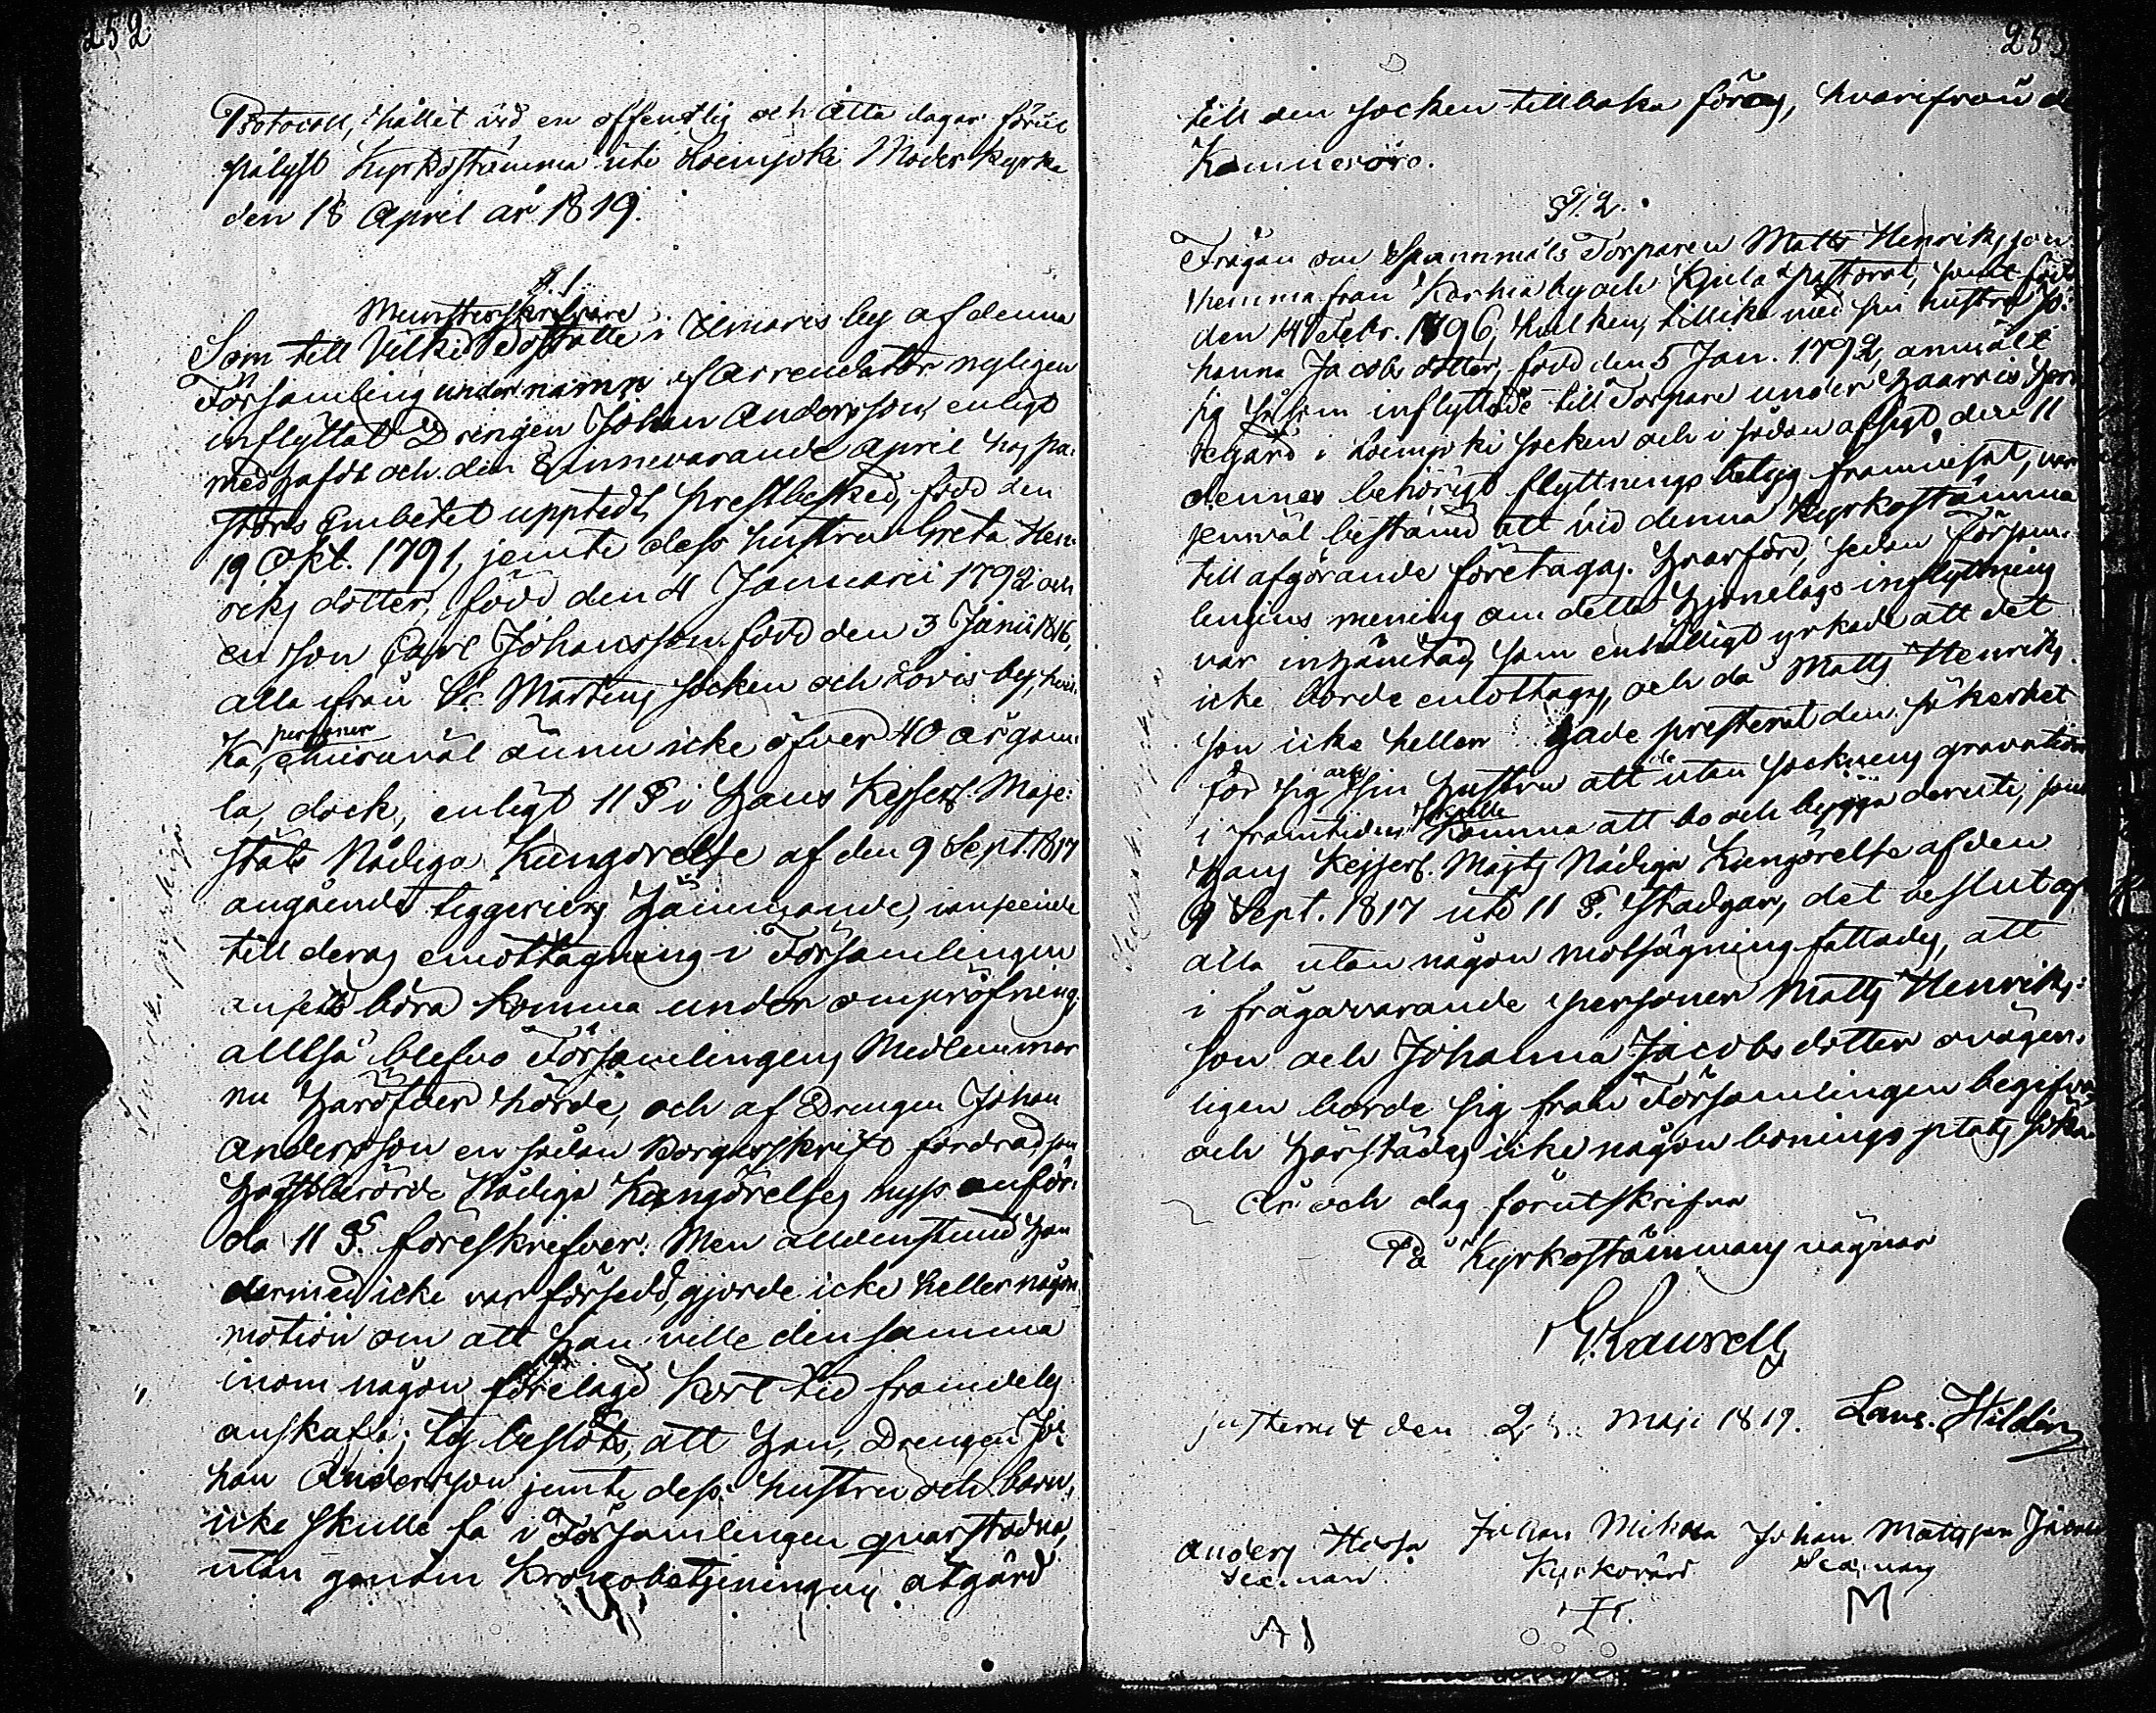 252
Protocoll, hållit vid en offentlig och åtta dagar förut
pålyst Kyrkostämma uti Loimjoki Moderkyrka
den 18 April år 1819.
§. 1
Munsterskrifvare
Som till Vilkid Boställe i Ilmaris by af denna
Församling under namn af Arrendator nyligen
inflyttat Drängen Johan Andersson, enligt
medhafdt och den 8 innevarande April hos pa-
stors Embetet uppteedt prestbesked, född den
19 Okt. 1791, jemte dess hustru Greta Hen-
riks dotter, född den 4 Januarii 1792 och
en son Carl Johansson född den 3 Junii 1816,
alla ifrån St. Martins socken och Loris by, hvil-
personer
ka, ehuruväl ännu icke öfver 40 år gam-
la, dock, enligt 11 § i Hans Kejserl. Maje-
stäts Nådiga Kungörelse af den 9 Sept. 1817
angående tiggeriers hämmande, i anseende
till deras emottagning i Församlingen
ansetts böra komma under ompröfning;
alltså blefvo Församlingens Medlemmar
nu häröfver hörde, och af Drengen Johan
Andersson en sådan Borgesskrift fordrad, som
högstberörde Nådiga Kungörelses nyss anför-
da 11 §. föreskrifver. Men alldenstund han
dermed icke var försedd, gjorde icke heller någon
motion om att han ville densamma
inom någon förelagd kort tid framdeles
anskaffa; ty beslöts, att han, Drengen Jo-
han Andersson jemte dess hustru och barn,
icke skulle få i Församlingen quarstadna,
utan genom Kronobetjeningens åtgärd
253
till den socken tillbaka föras, hvarifrån de
Kommo.
§. 2.
Frågan om Spannmåls Torparen Matts Henriksson
hemma från Karhia by och Kjula Pastorat, som är född
den 14 Febr. 1796, hvilken, tillika med sin hustru Jo-
hanna Jacobs dotter, född den 5 Jan. 1792, anmält
sig såsom inflyttade till Torpare under Haarois Her-
regård i Loimjoki socken och i sådan afsigt den 11
dennes behörigt flyttningsbetyg framvisat, var
jemväl bestämd att vid denna Kyrkostämma
till afgörande företagas. Hvarföre, sedan Försam-
lingens mening om detta hjonelags inflyttning
var inhämtad, som enhälligt yrkade att det
icke borde emottagas, och då Matts Henriks-
son icke heller hade presterat den säkerhet
för sig och sin hustru att de utan socknens gravation
skulle
i framtiden komma att bo och bygga deruti, som
Hans Kejserl. Majts Nådiga Kungörelse af den
9 Sept. 1817 uti 11 §. stadgar, det beslut af
alla utan någon motsägning fattades, att
i frågavarande personer Matts Henriks-
son och Johanna Jacobs dotter ovägen-
ligen borde sig från Församlingen begifva
och härstädes icke någon boningsplats söka.
År och dag förutskrifna
På Kyrkostämmans vägnar
G. Laurell
justerat den 2 Maji 1819. Laur. Hildén
Anders Heisa Johan Mikola Johan Mattsson
Sexman Kyrkovärd Sexman
M